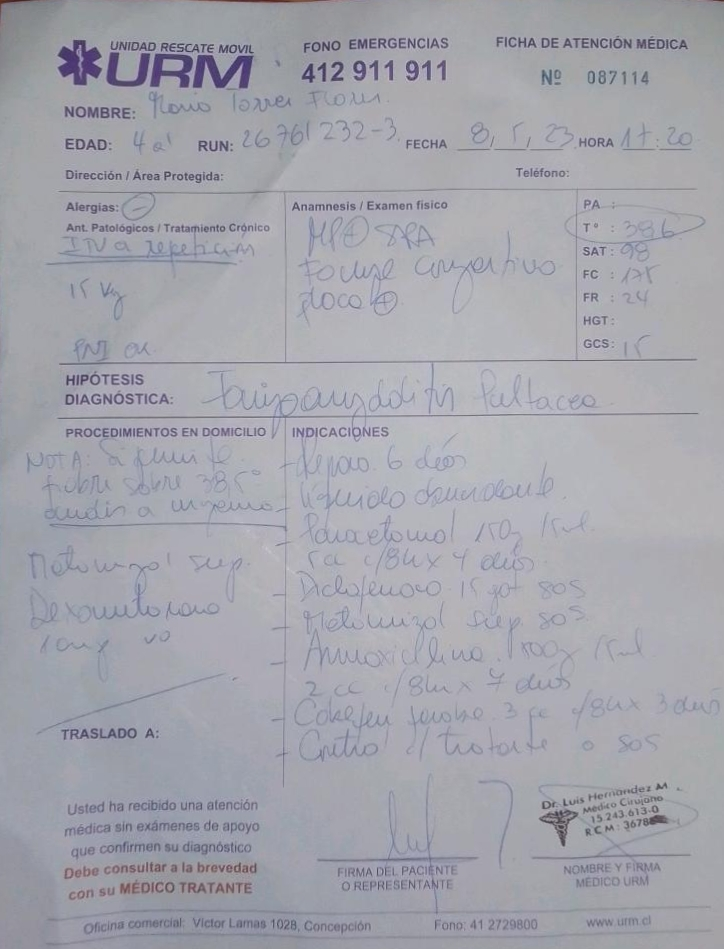 UNIDAD RESCATE MOVIL
URM
FONO EMERGENCIAS
412 911 911
FICHA DE ATENCIÓN MÉDICA
Nº 087114
NOMBRE: Torres Flores
EDAD: 4 a RUN: 26761232-3 FECHA 8, 5, 23 HORA 17:20
Dirección / Área Protegida: Teléfono:
Alergias: (-)
Ant. Patológicos / Tratamiento Crónico
ITU a repetición
15 Kg
PNI OK
Anamnesis / Examen físico
MP (+) SRA
Faringe congestiva
placa (+)
PA :
Tº : 386
SAT: 98
FC : 175
FR : 24
HGT:
GCS: 15
HIPÓTESIS
DIAGNÓSTICA: Pultacea
PROCEDIMIENTOS EN DOMICILIO
NOTA: Si
fiebre sobre 38,5º
acudir a urgencia
Metamizol sup.
Dexametasona
vo
TRASLADO A:
INDICACIONES
- Reposo 6 días
- Líquido abundante.
- Paracetamol
c/8h x 4 días
- Diclofenaco 15 got SOS
- Metamizol sup. SOS
- Amoxicilina
c/8h x 7 días
- jarabe 3 cc c/8h x 3 días
- Control c/ tratante o SOS
Usted ha recibido una atención
médica sin exámenes de apoyo
que confirmen su diagnóstico
Debe consultar a la brevedad
con su MÉDICO TRATANTE
FIRMA DEL PACIENTE
O REPRESENTANTE
Dr. Luis Hernández M.
Médico Cirujano
15.243.613-0
R.C.M.: 3678
NOMBRE Y FIRMA
MEDICO URM
Oficina comercial: Victor Lamas 1028, Concepción Fono: 41 2729800 www.urm.cl